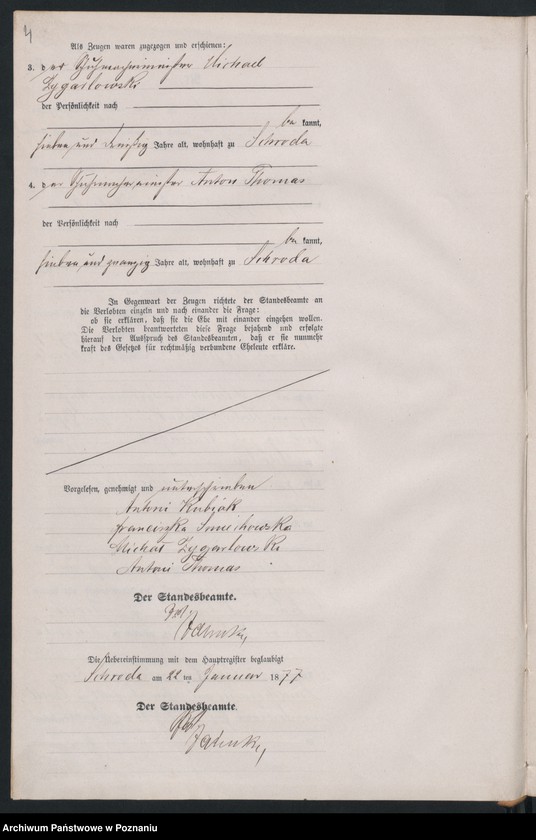 4
Als Zeugen waren zugezogen und erschienen:
3. der Schuhmachermeister Michael
Zygarlowski
der Persönlichkeit nach
be kannt,
sieben und dreißig Jahre alt, wohnhaft zu Schroda
4. der Schuhmachermeister Anton Thomas
der Persönlichkeit nach
be kannt,
sieben und zwanzig Jahre alt, wohnhaft zu Schroda
In Gegenwart der Zeugen richtete der Standesbeamte an
die Verlobten einzeln und nach einander die Frage:
ob sie erklären, daß sie die Ehe mit einander eingehen wollen.
Die Verlobten beantworteten diese Frage bejahend und erfolgte
hierauf der Ausspruch des Standesbeamten, daß er sie nunmehr
kraft des Gesetzes für rechtmäßig verbundene Eheleute erkläre.
Vorgelesen, genehmigt und unterschrieben
Antoni Kubiak
Franciszka Smiechowska
Michał Zygarlowski
Antoni Thomas
Der Standesbeamte.
Die Uebereinstimmung mit dem Hauptregister beglaubigt
Schroda am 22 ten Januar 1877
Der Standesbeamte.
Archiwum Państwowe w Poznaniu